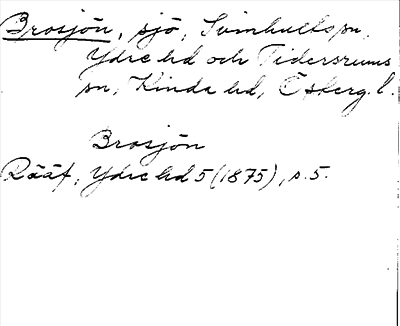 Brosjön, sjö, Svinhults sn,
Ydre hd och Tidersrums
sn, Kinda hd, Östergl.
Brosjön
Rääf, Ydre hd 5 (1875), s. 5.